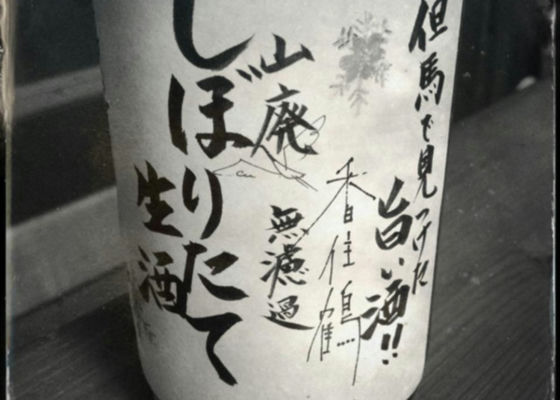 但馬で見つけた
旨い酒!!
香住鶴
山廃
無濾過
しぼりたて
生酒